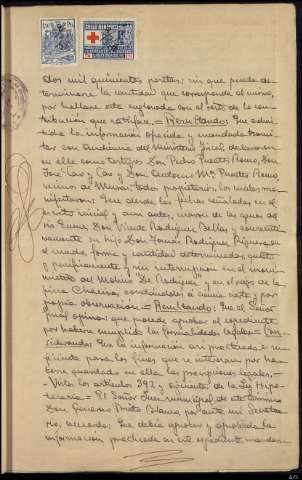 dos mil quinientas pesetas; sin que pueda de-
terminarse la cantidad que corresponde al mismo,
por hallarse este englobado con el resto de la con-
tribución que satisface. = Resultando: Que admi-
tida la información ofrecida y mandada tramitar
con audiencia del Ministerio Fiscal declararon
en ella como testigos Don Pedro Puertes Romo, Don
José Cao y Cao y Don Antonio Mª Puertes Romo,
vecinos de Muros todos propietarios, los cuales ma-
nifestaron: Que desde las fechas señaladas en el
escrito inicial y aun antes, usaron de las aguas del
río Eume, Don Vicente Rodríguez Bellas y
su hijo Don Tomás Rodríguez
el modo, forma y cantidad determinados, quieta
y pacíficamente y sin interrupción en el movi-
miento del Molino de Rodríguez y en el riego de la
finca Chacina, constándoles a ciencia cierta y por
propia observación = Resultando: Que el Señor
Fiscal opina: que procede aprobar el expediente
por haberse cumplido las formalidades legales = Con-
siderando: Que la información así practicada es su-
ficiente para los fines que se interesan por ha-
berse guardado en ella las prescripciones legales. —
Visto los artículos 392 y siguientes de la Ley Hipo-
tecaria = El Señor Juez municipal de este término
Don Generoso Prieto Blanco, por ante mí Secreta-
rio, acuerda: Que debía aprobar y aprobaba la
información practicada en este expediente mandan-